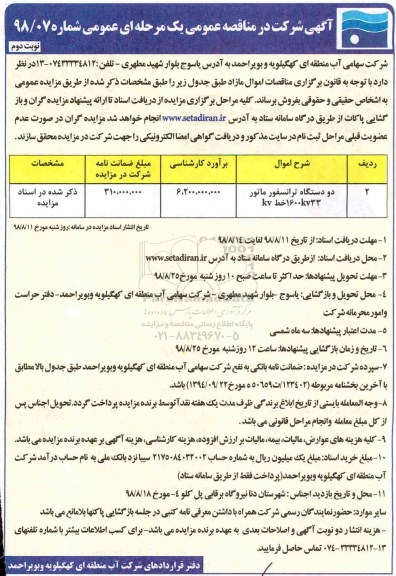 آگهی شرکت در مناقصه عمومی یک مرحله ای عمومی شماره ۹۸/۰۷
نوبت دوم
شرکت سهامی آب منطقه ای کهگیلویه و بویراحمد به آدرس یاسوج بلوار شهید مطهری - تلفن: ۱۳-۰۷۴۳۳۳۳۴۸۱۲ در نظر
دارد با توجه به قانون برگزاری مناقصات اموال مازاد طبق جدول زیر را طبق مشخصات ذکر شده از طریق مزایده عمومی
به اشخاص حقیقی و حقوقی بفروش برساند. کلیه مراحل برگزاری مزایده از دریافت اسناد تا ارائه پیشنهاد مزایده گران و باز
گشایی پاکات از طریق درگاه سامانه ستاد به آدرس www.setadiran.ir انجام خواهد شد مزایده گران در صورت عدم
عضویت قبلی مراحل ثبت نام در سایت مذکور و دریافت گواهی امضا الکترونیکی را جهت شرکت در مزایده محقق سازند.
ردیف شرح اموال برآورد کارشناسی مبلغ ضمانت نامه شرکت در مزایده مشخصات
۲ دو دستگاه ترانسفور ماتور ۱۶۰۰kv۳۳خط kv ۶.۲۰۰.۰۰۰.۰۰۰ ۳۱۰.۰۰۰.۰۰۰ ذکر شده در اسناد مزایده
تاریخ انتشار اسناد مزایده در سامانه :روز شنبه مورخ ۹۸/۸/۱۱
۱- مهلت دریافت اسناد: از تاریخ ۹۸/۸/۱۱ لغایت ۹۸/۸/۱۴
۲- محل دریافت اسناد: از طریق درگاه سامانه ستاد به آدرس www.setadiran.ir
۳- مهلت تحویل پیشنهادها: حد اکثر تا ساعت صبح ۱۰ روز شنبه مورخ ۹۸/۸/۲۵
۴- محل تحویل و بازگشایی: یاسوج -بلوار شهید مطهری - شرکت سهامی آب منطقه ای کهگیلویه وبویراحمد- دفتر حراست
وامور محرمانه شرکت
۵- مدت اعتبار پیشنهادها: سه ماه شمسی
۶- تاریخ و زمان بازگشایی پیشنهادها: ساعت ۱۲ روز شنبه مورخ ۹۸/۸/۲۵
۷- سپرده شرکت در مزایده : ضمانت نامه بانکی به نفع شرکت سهامی آب منطقه ای کهگیلویه وبویراحمد طبق جدول بالا مطابق
با آخرین بخشنامه مربوطه (۱۲۳۴۰۲/ت۵۰۶۵۹ ه مورخ ۹۴/۰۹/۲۲) باشد.
۸- وجه المعامله بایستی از تاریخ ابلاغ برندگی ظرف مدت یک هفته نقدا توسط برنده مزایده پرداخت گردد. تحویل اجناس پس
از کل مبلغ معامله وانجام مراحل قانونی می باشد.
۹- کلیه هزینه های عوارض، مالیات، بیمه، مالیات بر ارزش افزوده، هزینه کارشناسی، هزینه آگهی بر عهده برنده مزایده می باشد.
۱۰- مبلغ خرید اسناد: مبلغ یک میلیون ریال به شماره حساب ۲۱۷۵۰۸۴۰۳۲۰۰۲ سیبا نزد بانک ملی به نام حساب درآمد شرکت
آب منطقه ای کهگیلویه وبویراحمد(پرداخت فقط از طریق سامانه ستاد)
۱۱- محل و تاریخ بازدید اجناس : شهرستان دنا نیروگاه برقابی پل کلو ۴-مورخ ۹۸/۸/۱۸
سایر موارد: حضور نمایندگان رسمی شرکت همراه با داشتن معرفی نامه کتبی در جلسه بازگشایی پاکتها بلامانع می باشد
- هزینه انتشار دو نوبت آگهی و اصلاحات بعدی به عهده برنده مزایده می باشد- برای کسب اطلاعات بیشتر با شماره تلفنهای
۱۳-۳۳۳۳۴۸۱۲-۰۷۴ تماس حاصل فرمایید.
دفتر قراردادهای شرکت آب منطقه ای کهگیلویه وبویراحمد
پایگاه اطلاع رسانی مناقصه و مزایده
۰۲۱-۸۸۳۴۹۶۷۰-۵